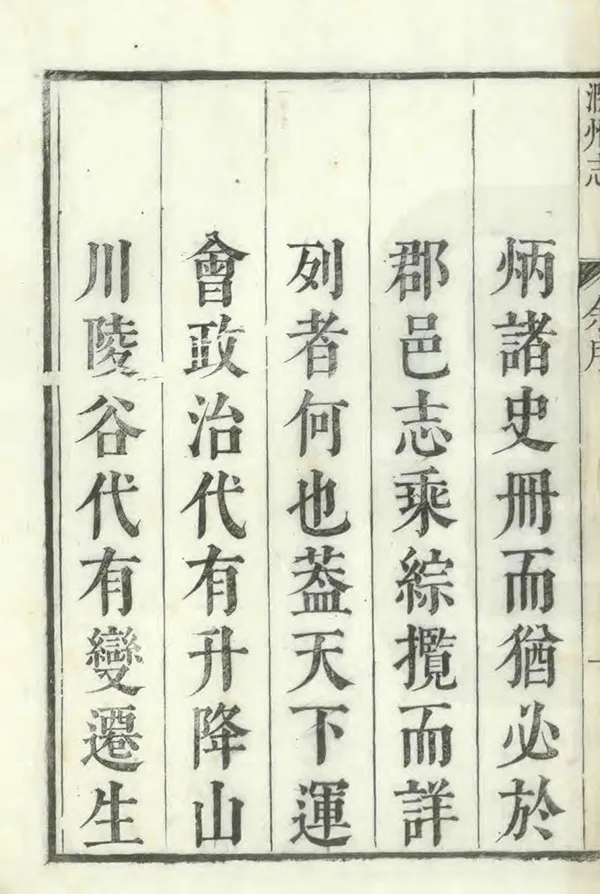 炳諸史冊而猶必於
郡邑志乘綜攬而詳
列者何也葢天下運
會政治代有升降山
川陵谷代有變遷生